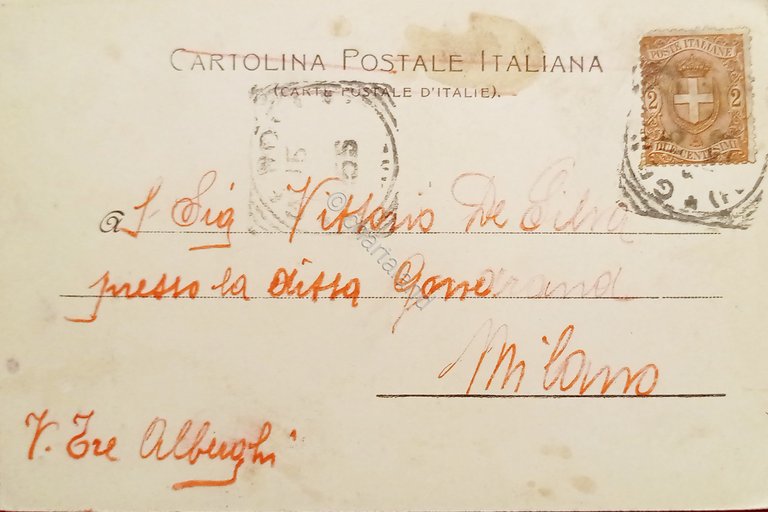 CARTOLINA POSTALE ITALIANA
(CARTE POSTALE D'ITALIE).
POSTE ITALIANE
2 2
DUE CENTESIMI
a S. Sig Vittorio De Silva
presso la ditta Gondrand
Milano
V. Tre Alberghi